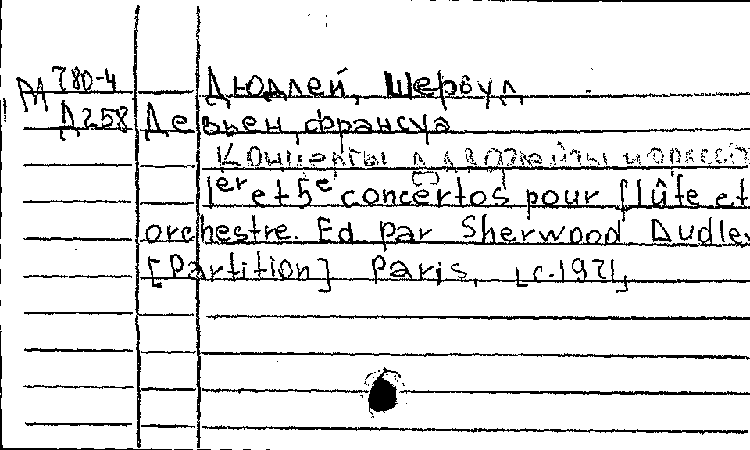 М Т80-4 Дюдлей, Шервуд
Д258 Девьен, франсуа
Концерты для флейты и оркест
1er et 5e concertos pour flûte et
orchestre. Ed par Sherwood Dudle
[Partition] Paris, [c.1971]